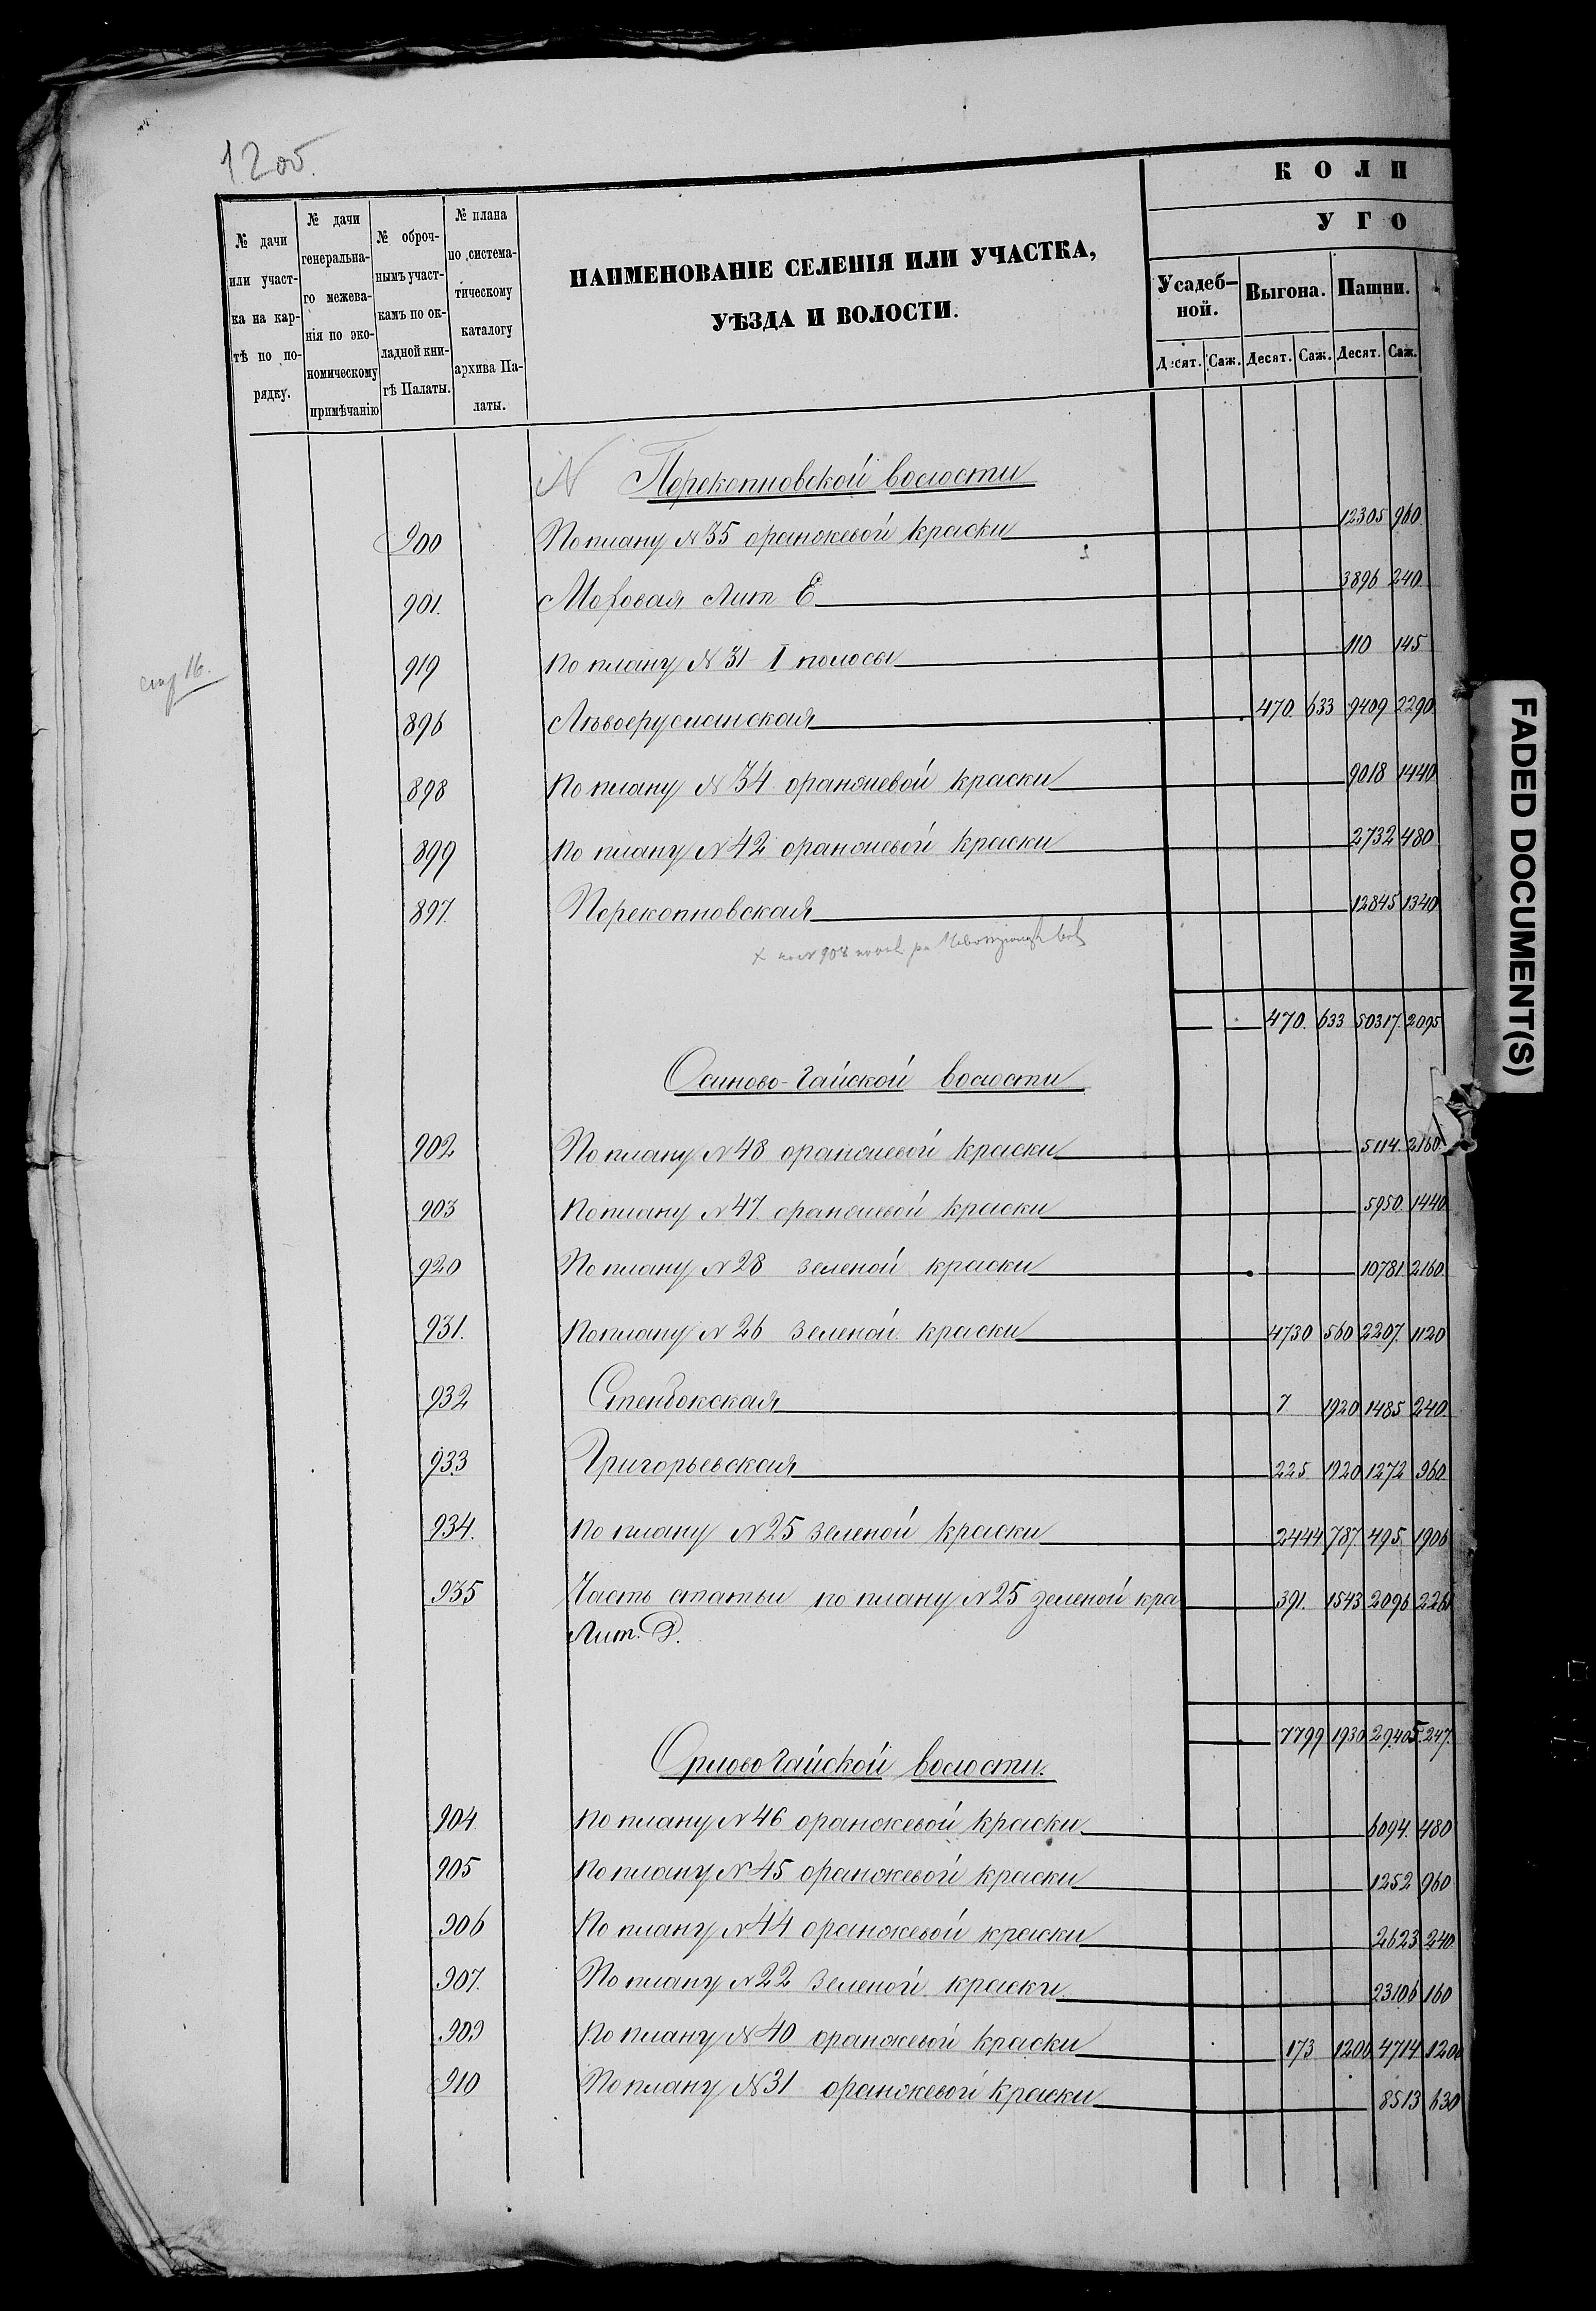 12об.
КОЛИ
УГО
№ дачи или участка на картѣ по порядку.
№ дачи генеральнаго межеванія по экономическому примѣчанію
№ оброчнымъ участкамъ по окладной книгѣ Палаты.
№ плана по систематическому каталогу архива Палаты.
НАИМЕНОВАНІЕ СЕЛЕНІЯ ИЛИ УЧАСТКА,
УѢЗДА И ВОЛОСТИ.
Усадебной. Выгона. Пашни.
Десят. Саж. Десят. Саж. Десят. Саж.
N Перекопновской волости
900 По плану N 35 оранжевой краски 12305 960
901. Моховая Лит Е 3896 240
919 По плану N 31 I полосы 110 145
стр 16.
896 Лѣвоерусланская 470. 633 9409 2290
898 По плану N 34 оранжевой краски 9018 1440
899 По плану N 42 оранжевой краски 2732 480
897. Перекопновская 12845 1340
470. 633 50317. 2095
Осиново-Гайской волости
902 По плану N 48 оранжевой краски 5114. 2160
903 По плану N 47. оранжевой краски 5950. 1440
920 По плану N 28 зеленой краски 10781. 2160.
931. По плану N 26 зеленой краски 4730 560 2207. 1120
932 Стенбокская 7 1920 1485 240.
933 Григорьевская 225 1920 1272 960
934. По плану N 25 зеленой краски 2444 787. 495. 1906
935 Часть статьи по плану N 25 зеленой кра 391. 1543 2096
Лит. Д.
7799 1930 29405. 247.
Орлово Гайской волости.
904. По плану N 46 оранжевой краски 6094. 480
905 По плану N 45 оранжевой краски 1252 960
906 По плану N 44 оранжевой краски 2623 240
907. По плану N 22 зеленой краски 23106 160
909 По плану N 40 оранжевой краски 173 1200 4714 1200
910 По плану N 31 оранжевой краски 8513 630
FADED DOCUMENT(S)